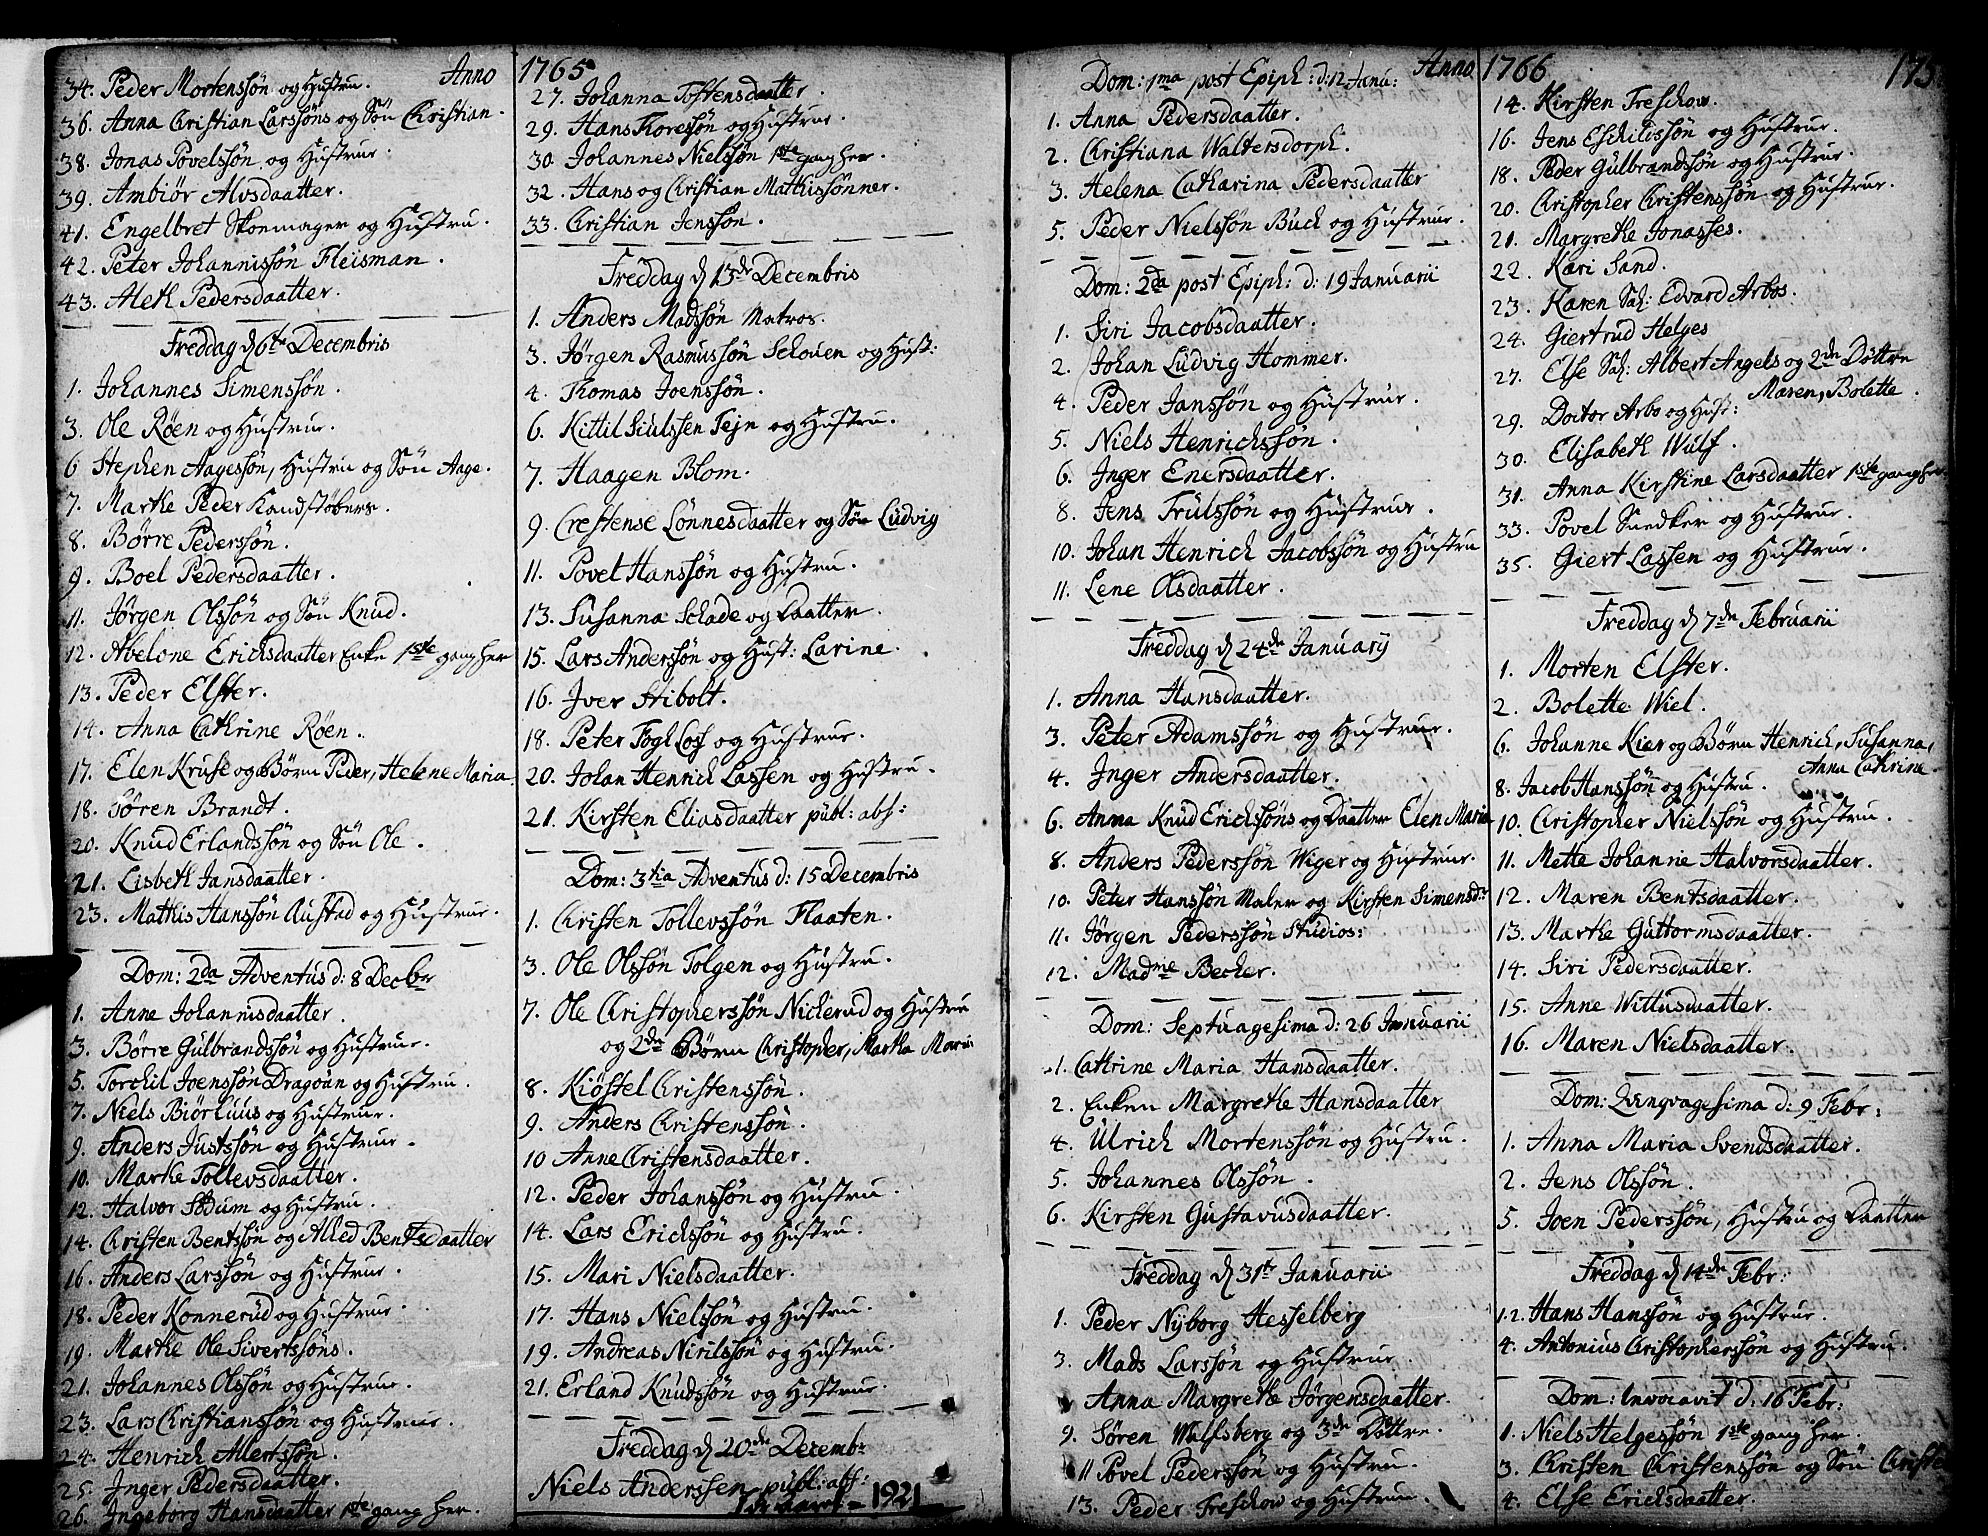 Anno 1765
34. Peder Mortenssön og Hustru.
36. Anna Christian Larssöns og Sön Christian.
38. Jonas Povelssön og Hustrue.
39. Ambiör Alvsdaatter.
41. Engelbret Skoemager og Hustru.
42. Peter Johannissön Fleisman.
43. Aleth Pedersdaatter.
Freddag d 6te Decembris
1. Johannes Simenssön.
3. Ole Röen og Hustrue.
6 Stephen Aagessön, Hustru og Sön Aage.
7. Marthe Peder Kandstöbers.
8. Börre Pederssön.
9. Boel Pedersdaatter.
11. Jörgen Olssön og Sön Knud.
12. Abelone Ericksdaatter Enke 1ste gang her
13. Peder Elster.
14. Anna Cathrine Röen.
17. Elen Kruse og Börn Peder, Helene Maria
18. Sören Brandt.
20. Knud Erlandssön og Sön Ole.
21. Lisbeth Jansdaatter.
23. Mathis Hanssön Rustad og Hustrue.
Dom: 2da Adventus d: 8 Decbr
1. Anne Johannisdaatter.
3. Börre Gulbrandssön og Hustrue.
5. Torchil Joenssön Dragoun og Hustru.
7. Niels Biörluus og Hustrue.
9. Anders Justssön og Hustrue.
10. Marthe Tollevsdaatter.
12. Halvor Södum og Hustru.
14. Christen Bentssön og Alled Bentsdaatter
16. Anders Larssön og Hustrue.
18. Peder Konnerud og Hustrue.
19. Marthe Ole Sivertssöns.
21. Johannes Olssön og Hustrue.
23. Lars Christianssön og Hustrue.
24. Henrich Allertssön.
25. Inger Pedersdaatter.
26. Ingeborg Hansdaatter 1te gang her.
27. Johanna Tostensdaatter.
29. Hans Thoressön og Hustrue.
30. Johannes Nielssön 1ste gang her.
32. Hans og Christian Mathissönner.
33. Christian Jenssön.
Freddag d 13de Decembris
1. Anders Madssön Matros.
3. Jörgen Rasmussön Schouen og Hust:
4. Thomas Joenssön.
6. Kittil Siulssen Tejn og Hustru.
7. Haagen Blom.
9. Crestense Lönnesdaatter og Sön Ludvig
11. Povel Hanssön og Hustru.
13. Susanna Schade og Daatter.
15. Lars Anderssön og Hust: Larine.
16. Iver Stibolt.
18. Peter Fogl og Hustrue.
20. Johan Henrich Lassen og Hustru.
21. Kirsten Eliasdaatter publ: abs:
Dom: 3tia Adventus d: 15 Decembris
1. Christen Tollevssön Flaaten.
3. Ole Olssön Tolgen og Hustru.
7. Ole Christopherssön Nickerud og Hustru
og 2de Börn Christopher, Martha Maria
8. Kiöstel Christenssön.
9. Anders Christenssön.
10 Anne Christensdaatter.
12. Peder Johanssön og Hustru.
14. Lars Erickssön og Hustru.
15. Mari Nielsdaatter.
17. Hans Nielssön og Hustru.
19. Andreas Nirilssön og Hustru.
21. Erland Knudssön og Hustrue.
Freddag d 20de Decembr
Niels Anderssen publ: abs:
1921
Anno 1766
173
Dom: 1ma post Epiph: d: 12 Janu:
1. Anna Pedersdaatter.
2. Christiana Waltersdorph.
3. Helena Catharina Pedersdaatter
5. Peder Nielssön Buck og Hustrue.
Dom: 2da post Epiph: d: 19 Januarii
1. Siri Jacobsdaatter.
2. Johan Ludvig Hommer.
4. Peder Janssön og Hustrue.
5. Niels Henrichssön.
6. Inger Enersdaatter.
8. Jens Trulssön og Hustrue.
10. Johan Henrich Jacobssön og Hustru
11. Lene Olsdaatter.
Freddag d 24de January
1. Anna Hansdaatter.
3. Peter Adamssön og Hustrue.
4. Inger Andersdaatter.
6. Anna Knud Erickssöns og Daatter Elen Maria
8. Anders Pederssön Wiger og Hustrue.
10. Peter Hanssön Maler og Kirsten Simensdr
11. Jörgen Pederssön Studios:
12. Madme Becker.
Dom: Septuagesima d: 26 Januarii
1. Cathrine Maria Hansdaatter.
2. Enken Margrethe Hansdaatter
4. Ulrich Mortenssön og Hustru.
5. Johannes Olssön.
6. Kirsten Gustavusdaatter.
Freddag d 31te Januarii
1. Peder Nyborg Hesselberg
3. Mads Larssön og Hustrue.
Anna Margrethe Jörgensdaatter.
9. Sören Wulfsberg og 3de Döttre.
11 Povel Pederssön og Hustru.
13. Peder Freschow og Hustrue.
14. Kirsten Freschow.
16. Jens Eschildssön og Hustrue.
18. Peder Gulbrandssön og Hustrue.
20. Christopher Christenssön og Hustrue.
21. Margrethe Jonasses.
22. Kari Sand.
23. Karen Sal: Edvard Arbos.
24. Giertrud Helges
27. Else Sal: Albert Angels og 2de Döttre
Maren, Bolette.
29. Doctor Arbo og Hust:
30. Elisabeth Wulf.
31. Anna Kirstine Larsdaatter 1ste gang her
33. Povel Snedker og Hustrue.
35. Giert Lassen og Hustrue.
Freddag d 7de Februarii
1. Morten Elster.
2. Bolette Wiel.
6. Johanne Kier og Börn Henrich, Susanna,
Anna Cathrine.
8. Jacob Hanssön og Hustru.
10. Christopher Nielssön og Hustru.
11. Mette Johanne Halvorsdaatter.
12. Maren Bentsdaatter.
13. Marthe Guttormsdaatter.
14. Siri Pedersdaatter.
15. Anne Wittusdaatter.
16. Maren Nielsdaatter.
Dom: Qvinqvagesima d: 9 Febr:
1. Anna Maria Svendsdaatter.
2. Jens Olssön.
5. Joen Pederssön, Hustru og Daatter
Freddag d 14de Febr:
1.2. Hans Hanssön og Hustrue.
4. Antonius Christopherssön og Hustru.
Dom: Invocavit d: 16 Febr:
1. Niels Helgessön 1ste gang her.
3. Christen Christenssön og Sön Christe
4. Else Ericksdaatter.